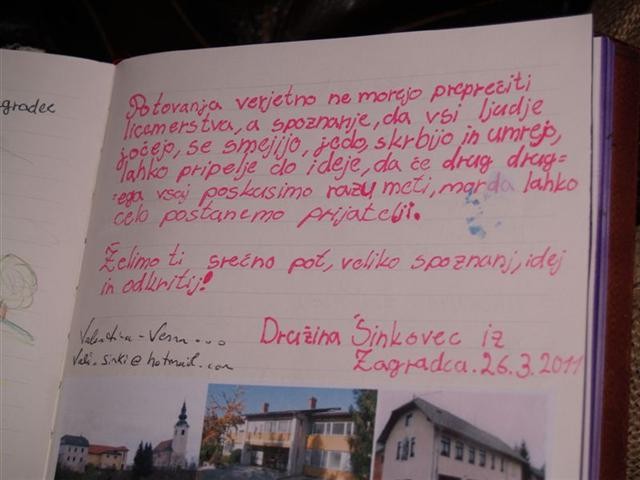 gradec
Potovanja verjetno ne morejo preprečiti
licemerstva, a spoznanje, da vsi ljudje
jočejo, se smejijo, jedo, skrbijo in umrejo,
lahko pripelje do ideje, da če drug drug=
=ega vsaj poskusimo razumeti, morda lahko
celo postanemo prijatelji.
Želimo ti srečno pot, veliko spoznanj, idej
in odkritij!
Družina Šinkovec iz
Zagradca. 26.3.2011
Valentina - 
Vali.sinki@hotmail.com